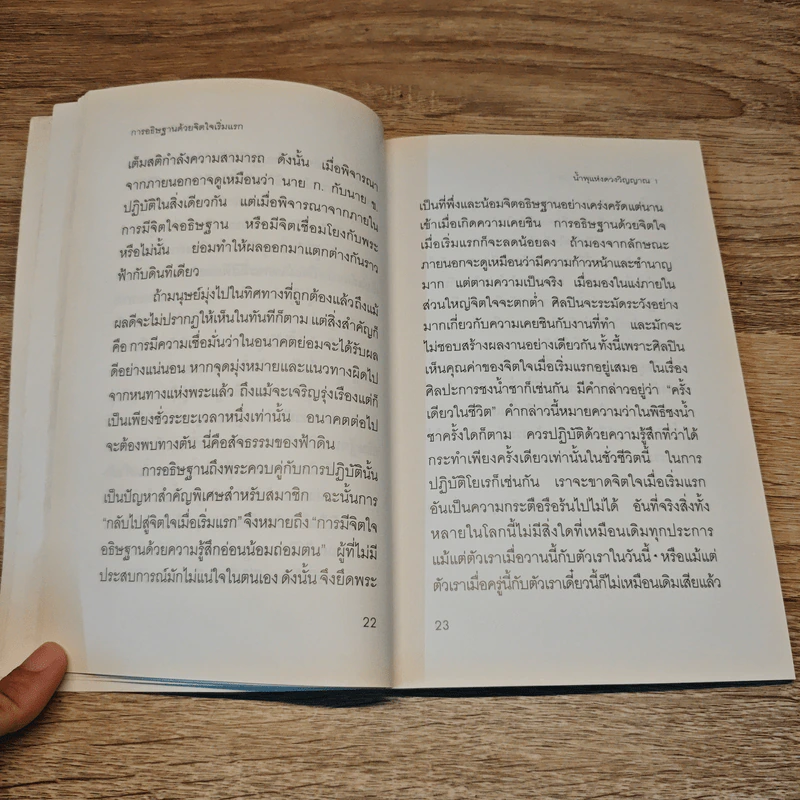 การอธิษฐานด้วยจิตใจเริ่มแรก
เต็มสติกำลังความสามารถ ดังนั้น เมื่อพิจารณา
จากภายนอกอาจดูเหมือนว่า นาย ก. กับนาย ข.
ปฏิบัติในสิ่งเดียวกัน แต่เมื่อพิจารณาจากภายใน
การมีจิตใจอธิษฐาน หรือมีจิตเชื่อมโยงกับพระ
หรือไม่นั้น ย่อมทำให้ผลออกมาแตกต่างกันราว
ฟ้ากับดินทีเดียว
ถ้ามนุษย์มุ่งไปในทิศทางที่ถูกต้องแล้วถึงแม้
ผลดีจะไม่ปรากฏให้เห็นในทันทีก็ตาม แต่สิ่งสำคัญก็
คือ การมีความเชื่อมั่นว่าในอนาคตย่อมจะได้รับผล
ดีอย่างแน่นอน หากจุดมุ่งหมายและแนวทางผิดไป
จากหนทางแห่งพระแล้ว ถึงแม้จะเจริญรุ่งเรืองแต่ก็
เป็นเพียงชั่วระยะเวลาหนึ่งเท่านั้น อนาคตต่อไป
จะต้องพบทางตัน นี่คือสัจธรรมของฟ้าดิน
การอธิษฐานถึงพระควบคู่กับการปฏิบัตินั้น
เป็นปัญหาสำคัญพิเศษสำหรับสมาชิก ฉะนั้นการ
"กลับไปสู่จิตใจเมื่อเริ่มแรก" จึงหมายถึง "การมีจิตใจ
อธิษฐานด้วยความรู้สึกอ่อนน้อมถ่อมตน" ผู้ที่ไม่มี
ประสบการณ์มักไม่แน่ใจในตนเอง ดังนั้น จึงยึดพระ
22
น้ำพุแห่งดวงวิญญาณ 1
เป็นที่พึ่งและน้อมจิตอธิษฐานอย่างเคร่งครัดแต่นาน
เข้าเมื่อเกิดความเคยชิน การอธิษฐานด้วยจิตใจ
เมื่อเริ่มแรกก็จะลดน้อยลง ถ้ามองจากลักษณะ
ภายนอกจะดูเหมือนว่ามีความก้าวหน้าและชำนาญ
มาก แต่ตามความเป็นจริง เมื่อมองในแง่ภายใน
ส่วนใหญ่จิตใจจะตกต่ำ ศิลปินจะระมัดระวังอย่าง
มากเกี่ยวกับความเคยชินกับงานที่ทำ และมักจะ
ไม่ชอบสร้างผลงานอย่างเดียวกัน ทั้งนี้เพราะศิลปิน
เห็นคุณค่าของจิตใจเมื่อเริ่มแรกอยู่เสมอ ในเรื่อง
ศิลปะการชงน้ำชาก็เช่นกัน มีคำกล่าวอยู่ว่า "ครั้ง
เดียวในชีวิต" คำกล่าวนี้หมายความว่าในพิธีชงน้ำ
ชาครั้งใดก็ตาม ควรปฏิบัติด้วยความรู้สึกที่ว่าได้
กระทำเพียงครั้งเดียวเท่านั้นในชั่วชีวิตนี้ ในการ
ปฏิบัติโยเรก็เช่นกัน เราจะขาดจิตใจเมื่อเริ่มแรก
อันเป็นความกระตือรือร้นไปไม่ได้ อันที่จริงสิ่งทั้ง
หลายในโลกนี้ไม่มีสิ่งใดที่เหมือนเดิมทุกประการ
แม้แต่ตัวเราเมื่อวานนี้กับตัวเราในวันนี้ • หรือแม้แต่
ตัวเราเมื่อครู่นี้กับตัวเราเดี๋ยวนี้ก็ไม่เหมือนเดิมเสียแล้ว
23